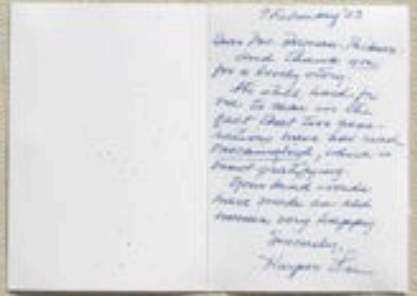 February '03
Dear
and thank you
for a lovely story.
It's still hard for
me to take in the
fact that two gene-
rations have
Mockingbird, which is
most gratifying.
Your kind words
have made an old
woman very happy.
Sincerely,
Harper Lee